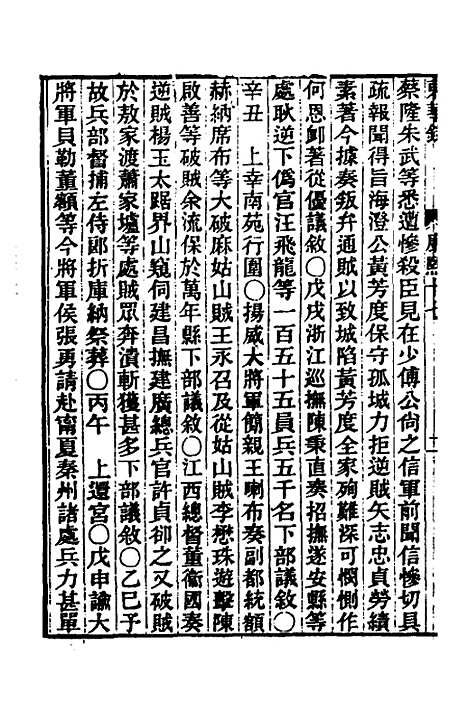 蔡隆朱武等悉遭慘殺臣見在少傅公尙之信軍前聞信慘切具
疏報聞得旨海澄公黃芳度保守孤城力拒逆賊矢志忠貞勞績
素著今據奏叛弁通賊以致城陷黃芳度全家殉難深可憫惻作
何恩卹著從優議敘〇戊戌浙江巡撫陳秉直奏招撫遂安縣等
處耿逆下僞官汪飛龍等一百五十五員兵五千名下部議敘〇
辛丑　上幸南苑行圍〇揚威大將軍簡親王喇布奏副都統額
赫納席布等大破麻姑山賊王永召及從姑山賊李懋珠遊擊陳
啟善等破賊余流保於萬年縣下部議敘〇江西總督董衞國奏
逆賊楊玉太踞界山窺伺建昌撫建廣總兵官許貞卻之又破賊
於敖家渡蕭家壚等處賊眾奔潰斬獲甚多下部議敘〇乙巳予
故兵部督捕左侍郎折庫納祭葬〇丙午　上還宮〇戊申諭大
將軍貝勒董額等今將軍侯張勇請赴甯夏秦州諸處兵力甚單